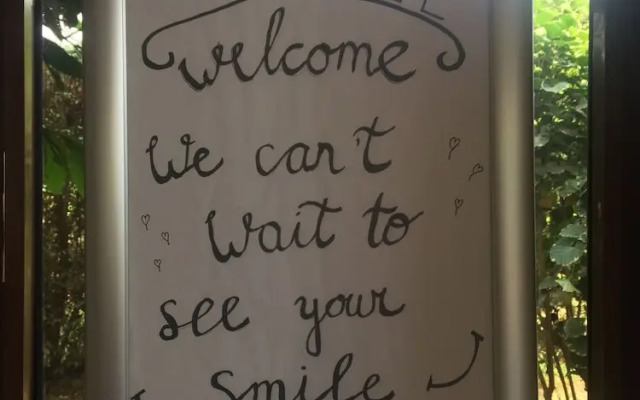 Welcome
We can't
Wait to
see your
Smile